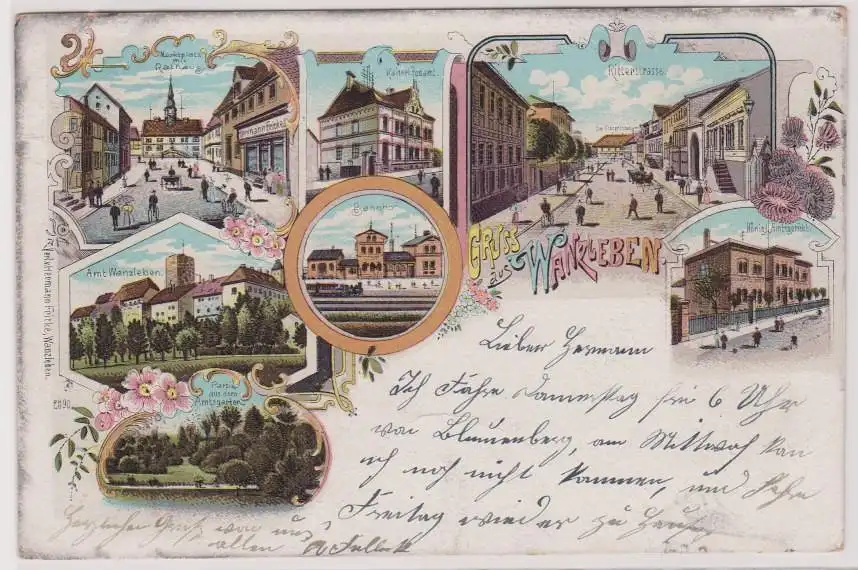 Marktplatz
mit
Rathaus
Hermann Fricke
Kaiserl. Postamt.
Ritterstrasse.
Amt Wanzleben.
Bahnhof
GRUSS
aus WANZLEBEN.
Königl. Amtsgericht.
Partie
aus dem
Amtsgarten
Hermann Fricke, Wanzleben.
Lieber Hermann
Ich fahre Donnerstag frü 6 Uhr
von Blumenberg, am Mittwoch kan
ich noch nicht kommen, und fahre
Freitag wieder zu Hause
Herzlicher Gruß von uns
allen